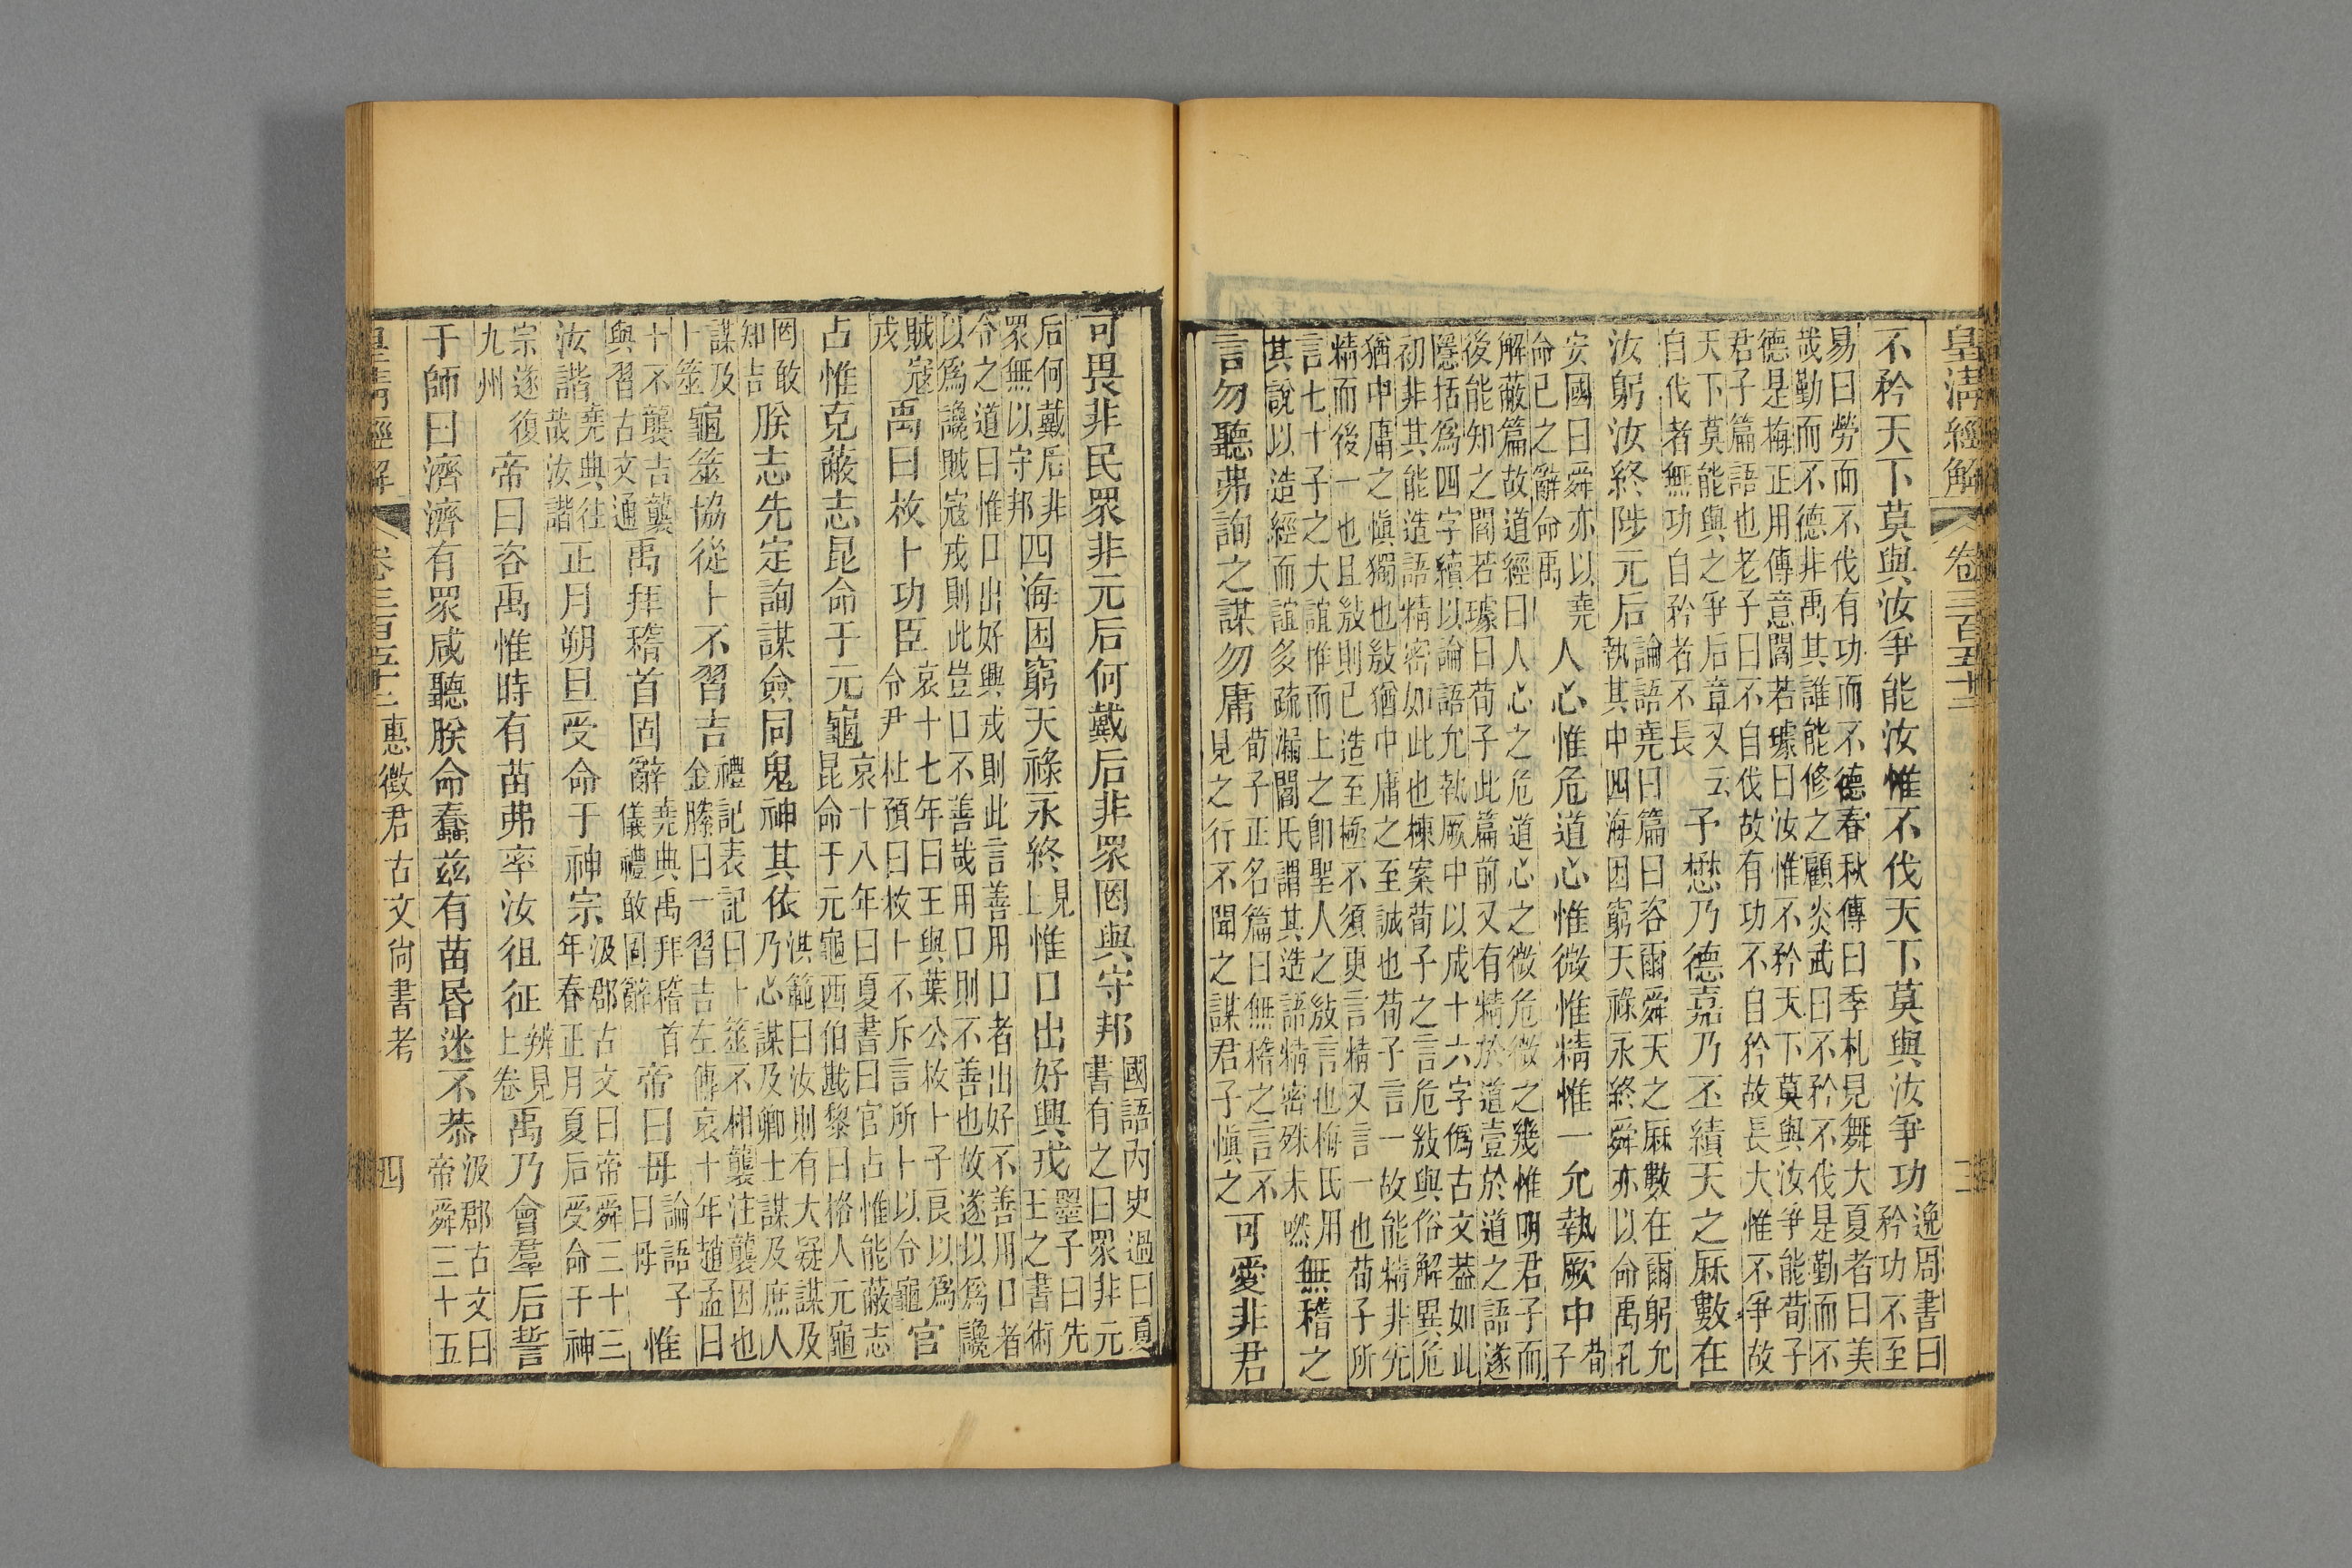 皇清經解 卷三百五十二 三
不矜天下莫與汝爭能汝惟不伐天下莫與汝爭功逸周書曰矜功不至
易曰勞而不伐有功而不德春秋傳曰季札見舞大夏者曰美哉勤而不德非禹其誰能修之顧炎武曰不矜不伐是勤而不
德是梅正用傳意閻若璩曰汝惟不矜天下莫與汝爭能荀子君子篇語也老子曰不自伐故有功不自矜故長大惟不爭故
天下莫能與之爭后章又云自伐者無功自矜者不長予懋乃德嘉乃丕績天之厤數在
汝躬汝終陟元后論語堯曰篇曰咨爾舜天之厤數在爾躬允執其中四海困窮天祿永終舜亦以命禹孔
安國曰舜亦以堯命已之辭命禹人心惟危道心惟微惟精惟一允執厥中荀子
解蔽篇故道經曰人心之危道心之微危微之幾惟明君子而後能知之閻若璩曰荀子此篇前又有精於道壹於道之語遂
隱括爲四字續以論語允執厥中以成十六字僞古文葢如此初非其能造語精密如此也棟案荀子之言危敥與俗解異危
猶中庸之愼獨也敥猶中庸之至誠也荀子言一故能精非先精而後一也且敥則已造至極不須更言精又言一也荀子所
言七十子之大誼惟而上之卽聖人之敥言也梅氏用其說以造經而誼多疏漏閻氏謂其造語精密殊未嘫無稽之
言勿聽弗詢之謀勿庸荀子正名篇曰無稽之言不見之行不聞之謀君子愼之可愛非君
可畏非民眾非元后何戴后非眾罔與守邦國語內史過曰夏書有之曰眾非元
后何戴后非眾無以守邦四海困窮天祿永終見上惟口出好興戎墨子曰先王之書術
令之道曰惟口出好興戎則此言善用口者出好不善用口者以爲讒賊寇戎則此豈口不善哉用口則不善也故遂以爲讒
賊寇戎禹曰枚卜功臣哀十七年曰王與葉公枚卜子良以爲令尹杜預曰枚卜不斥言所卜以令龜官
占惟克蔽志昆命于元龜哀十八年曰夏書曰官占惟能蔽志昆命于元龜西伯戡黎曰格人元龜
罔敢知吉朕志先定詢謀僉同鬼神其依洪範曰汝則有大疑謀及乃心謀及卿士謀及庶人
謀及卜筮龜筮協從卜不習吉禮記表記曰卜筮不相襲注襲因也金縢曰一習吉左傳哀十年趙孟曰
十不襲吉襲與習古文通禹拜稽首固辭堯典禹拜稽首儀禮敢固辭帝曰毋論語子曰毋惟
汝諧堯典往哉汝諧正月朔旦受命于神宗汲郡古文曰帝舜三十三年春正月夏后受命于神
宗遂復九州帝曰咨禹惟時有苗弗率汝徂征辨見上卷禹乃會羣后誓
于師曰濟濟有眾咸聽朕命蠢茲有苗昏迷不恭汲郡古文曰帝舜三十五
皇清經解 卷三百五十二 惠徵君古文尙書考 四